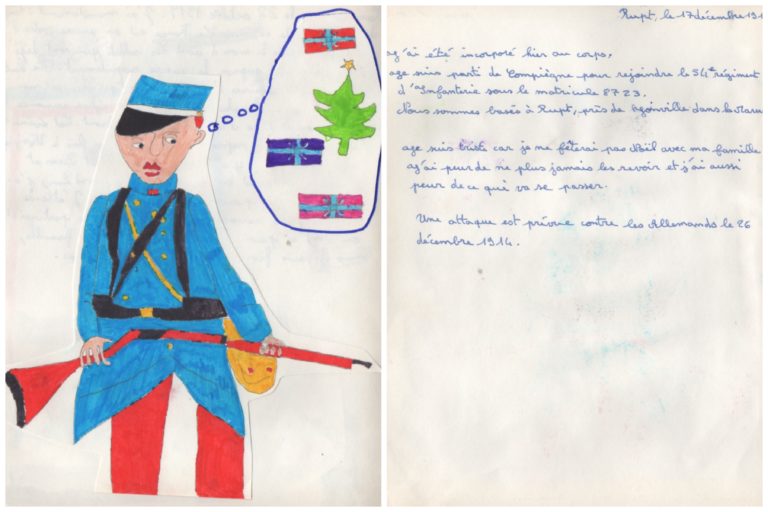 Rupt, le 17 décembre 191
J'ai été incorporé hier au corps,
Je suis parti de Compiègne pour rejoindre le 54e régiment
d'Infanterie sous le matricule 8723.
Nous sommes basés à Rupt, près de Joinville dans la
Je suis triste car je ne fêterai pas Noël avec ma famille
J'ai peur de ne plus jamais les revoir et j'ai aussi
peur de ce qui va se passer.
Une attaque est prévue contre les Allemands le 26
décembre 1914.